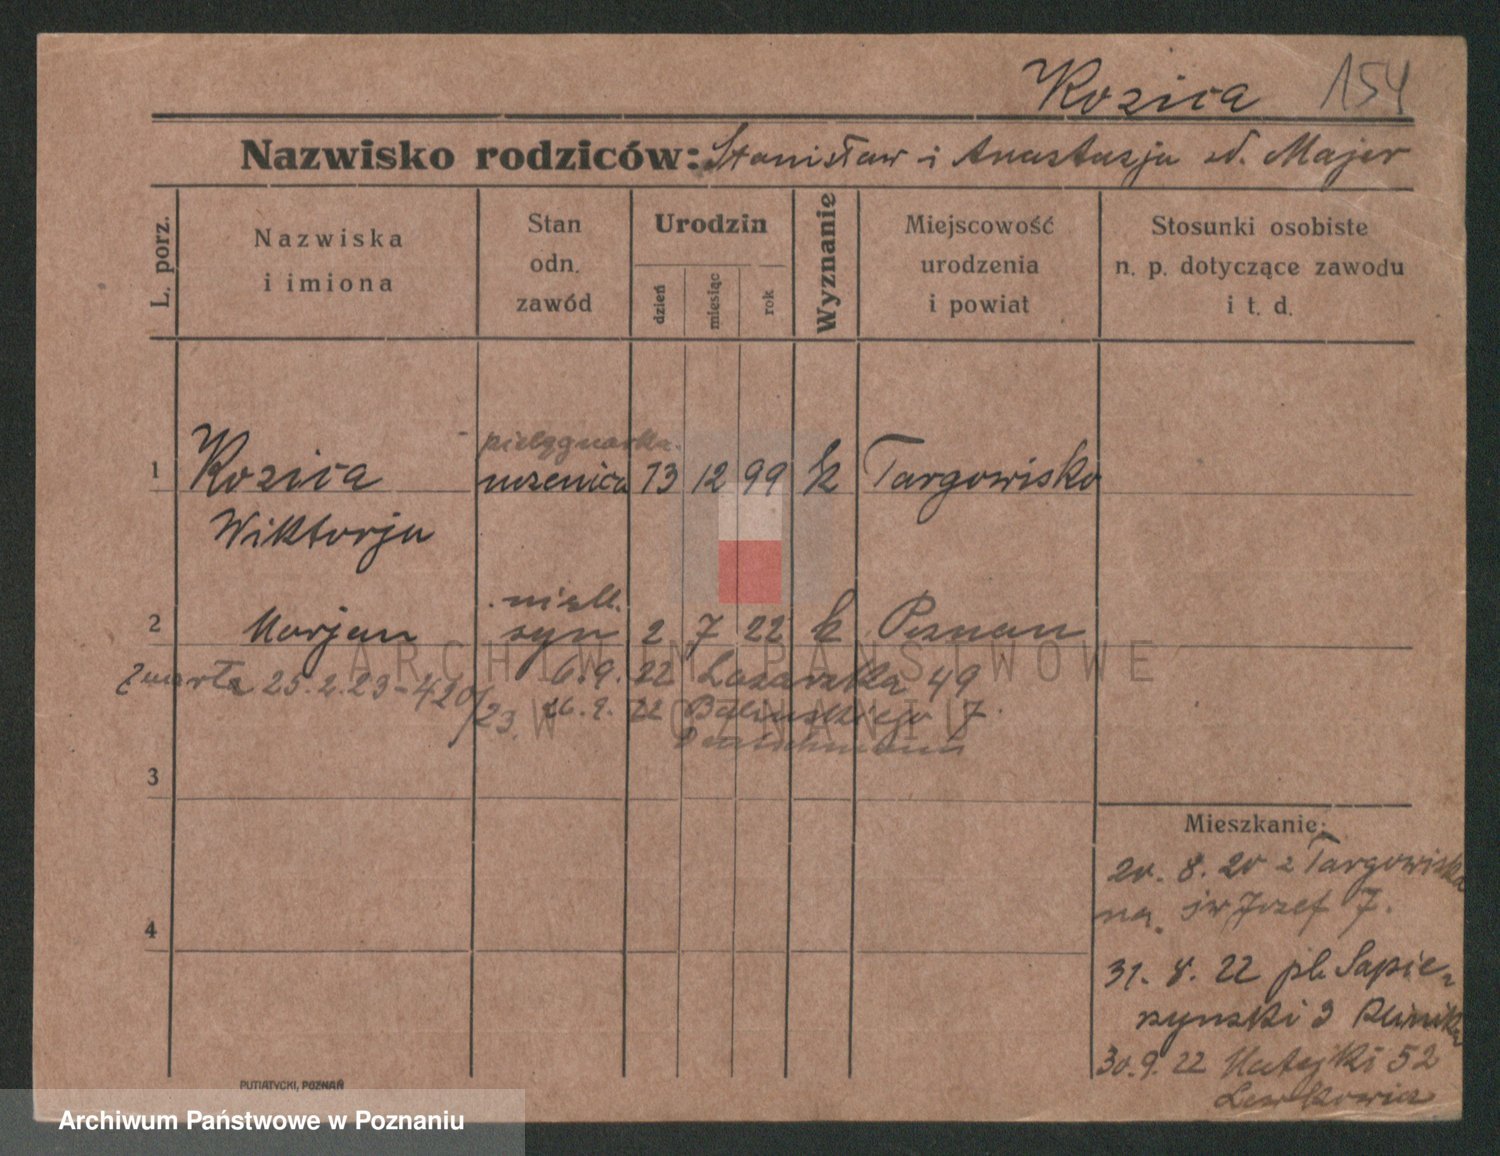 Kozica 154
Nazwisko rodziców: Stanisław i Anastazja zd. Majer
L. porz.
Nazwiska
i imiona
Stan
odn.
zawód
Urodzin
dzień
miesiąc
rok
Wyznanie
Miejscowość
urodzenia
i powiat
Stosunki osobiste
n. p. dotyczące zawodu
i t. d.
pielęgniarka
1 Kozica uczenica 13 12 99 k Targowisko
Wiktorja
nieśl.
2 Marjan syn 2 7 22 k Poznan
zmarła 25.2.23 - 420/23
6.9.22 Łazarska 49
26.9.22 7
3
4
Mieszkanie:
20. 8. 20 z Targowiska
na św Józef 7.
31. 8. 22 pl. Sapie-
żynski 3 Klinika
30.9.22 Matejki 52
Lewkowicz
PUTIATYCKI, POZNAŃ
ARCHIWUM PAŃSTWOWE
W POZNANIU
Archiwum Państwowe w Poznaniu